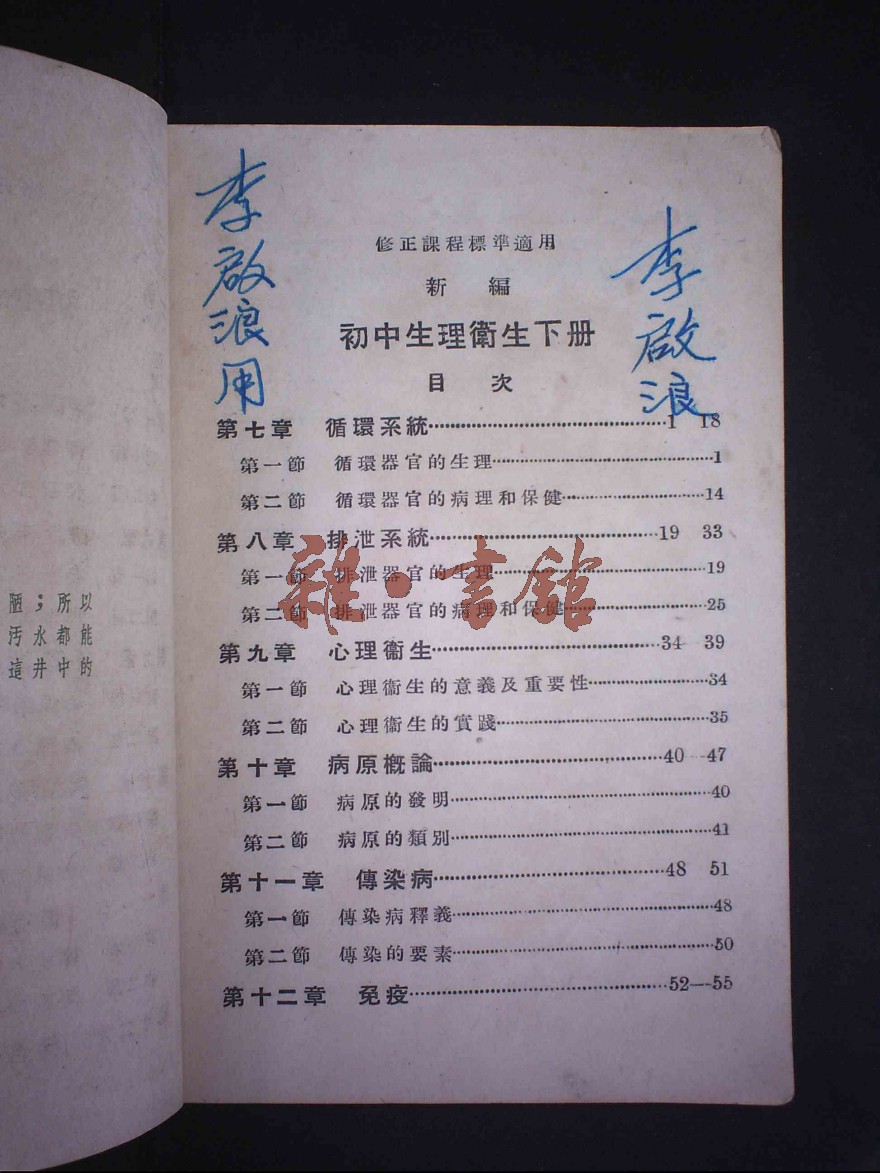 李啟浪用
李啟浪
修正課程標準適用
新 編
初中生理衛生下册
目 次
第七章 循環系統……1 18
第一節 循環器官的生理……1
第二節 循環器官的病理和保健……14
第八章 排泄系統……19 33
第一節 排泄器官的生理……19
第二節 排泄器官的病理和保健……25
第九章 心理衞生……34 39
第一節 心理衞生的意義及重要性……34
第二節 心理衞生的實踐……35
第十章 病原概論……40—47
第一節 病原的發明……40
第二節 病原的類別……41
第十一章 傳染病……48 51
第一節 傳染病釋義……48
第二節 傳染的要素……50
第十二章 免疫……52—55
陋；所以
汚水都能
這井中的
雜·書館